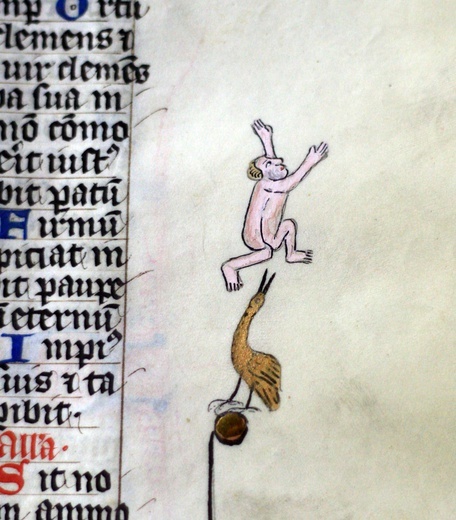 mp̄ Ortū
clemens ⁊
uir clemēs
ba sua in
mō cōmo
eit iustꝰ
bit patū
Firmū
piciat in
it paupe
i eternū
Impiꝰ
uis ⁊ ta
pibit·
alla·
Sit no